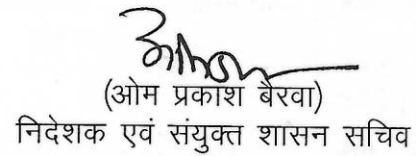 (ओम प्रकाश बैरवा)
निदेशक एवं संयुक्त शासन सचिव